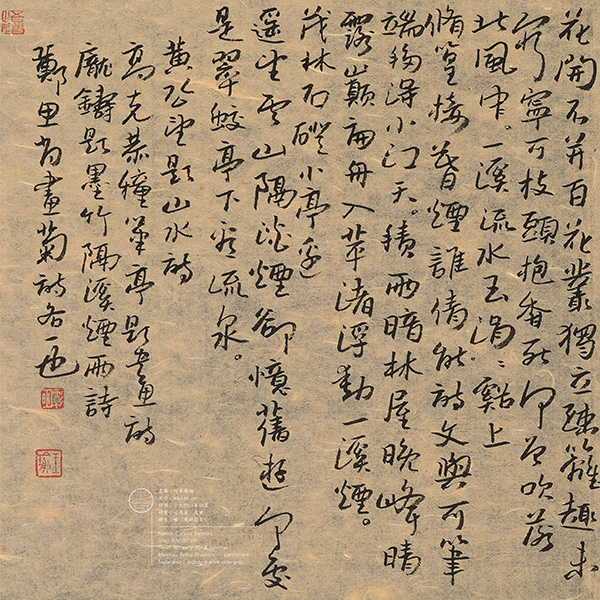 花開不并百花叢獨立疎籬趣未
窮寧可枝頭抱香死何曾吹落
北風中。一溪流水玉涓〻谿上
脩篁接暮煙誰倩能詩文與可筆
端移得小江天。積雨暗林屋晚峰晴
露巔扁舟入蘋渚浮動一溪煙。
茂林石磴小亭邊
遥望雲山隔淡煙卻憶舊遊何處
是翠蛟亭下看流泉。
黄公望題山水詩
高克恭種筆亭題畫詩
龐鑄題墨竹隔溪煙雨詩
鄭思肖畫菊詩各一也